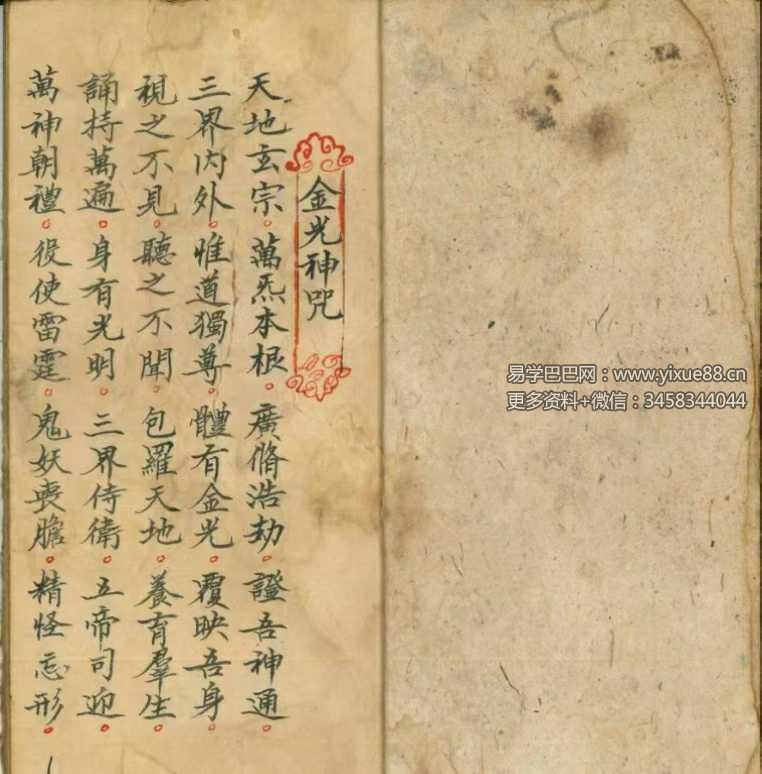 金光神咒
天地玄宗。萬炁本根。廣脩浩劫。證吾神通。
三界內外。惟道獨尊。體有金光。覆映吾身。
視之不見。聽之不聞。包羅天地。養育羣生。
誦持萬遍。身有光明。三界侍衛。五帝司迎。
萬神朝禮。役使雷霆。鬼妖喪膽。精怪忘形。
易学巴巴网：www.yixue88.cn
更多资料+微信：3458344044